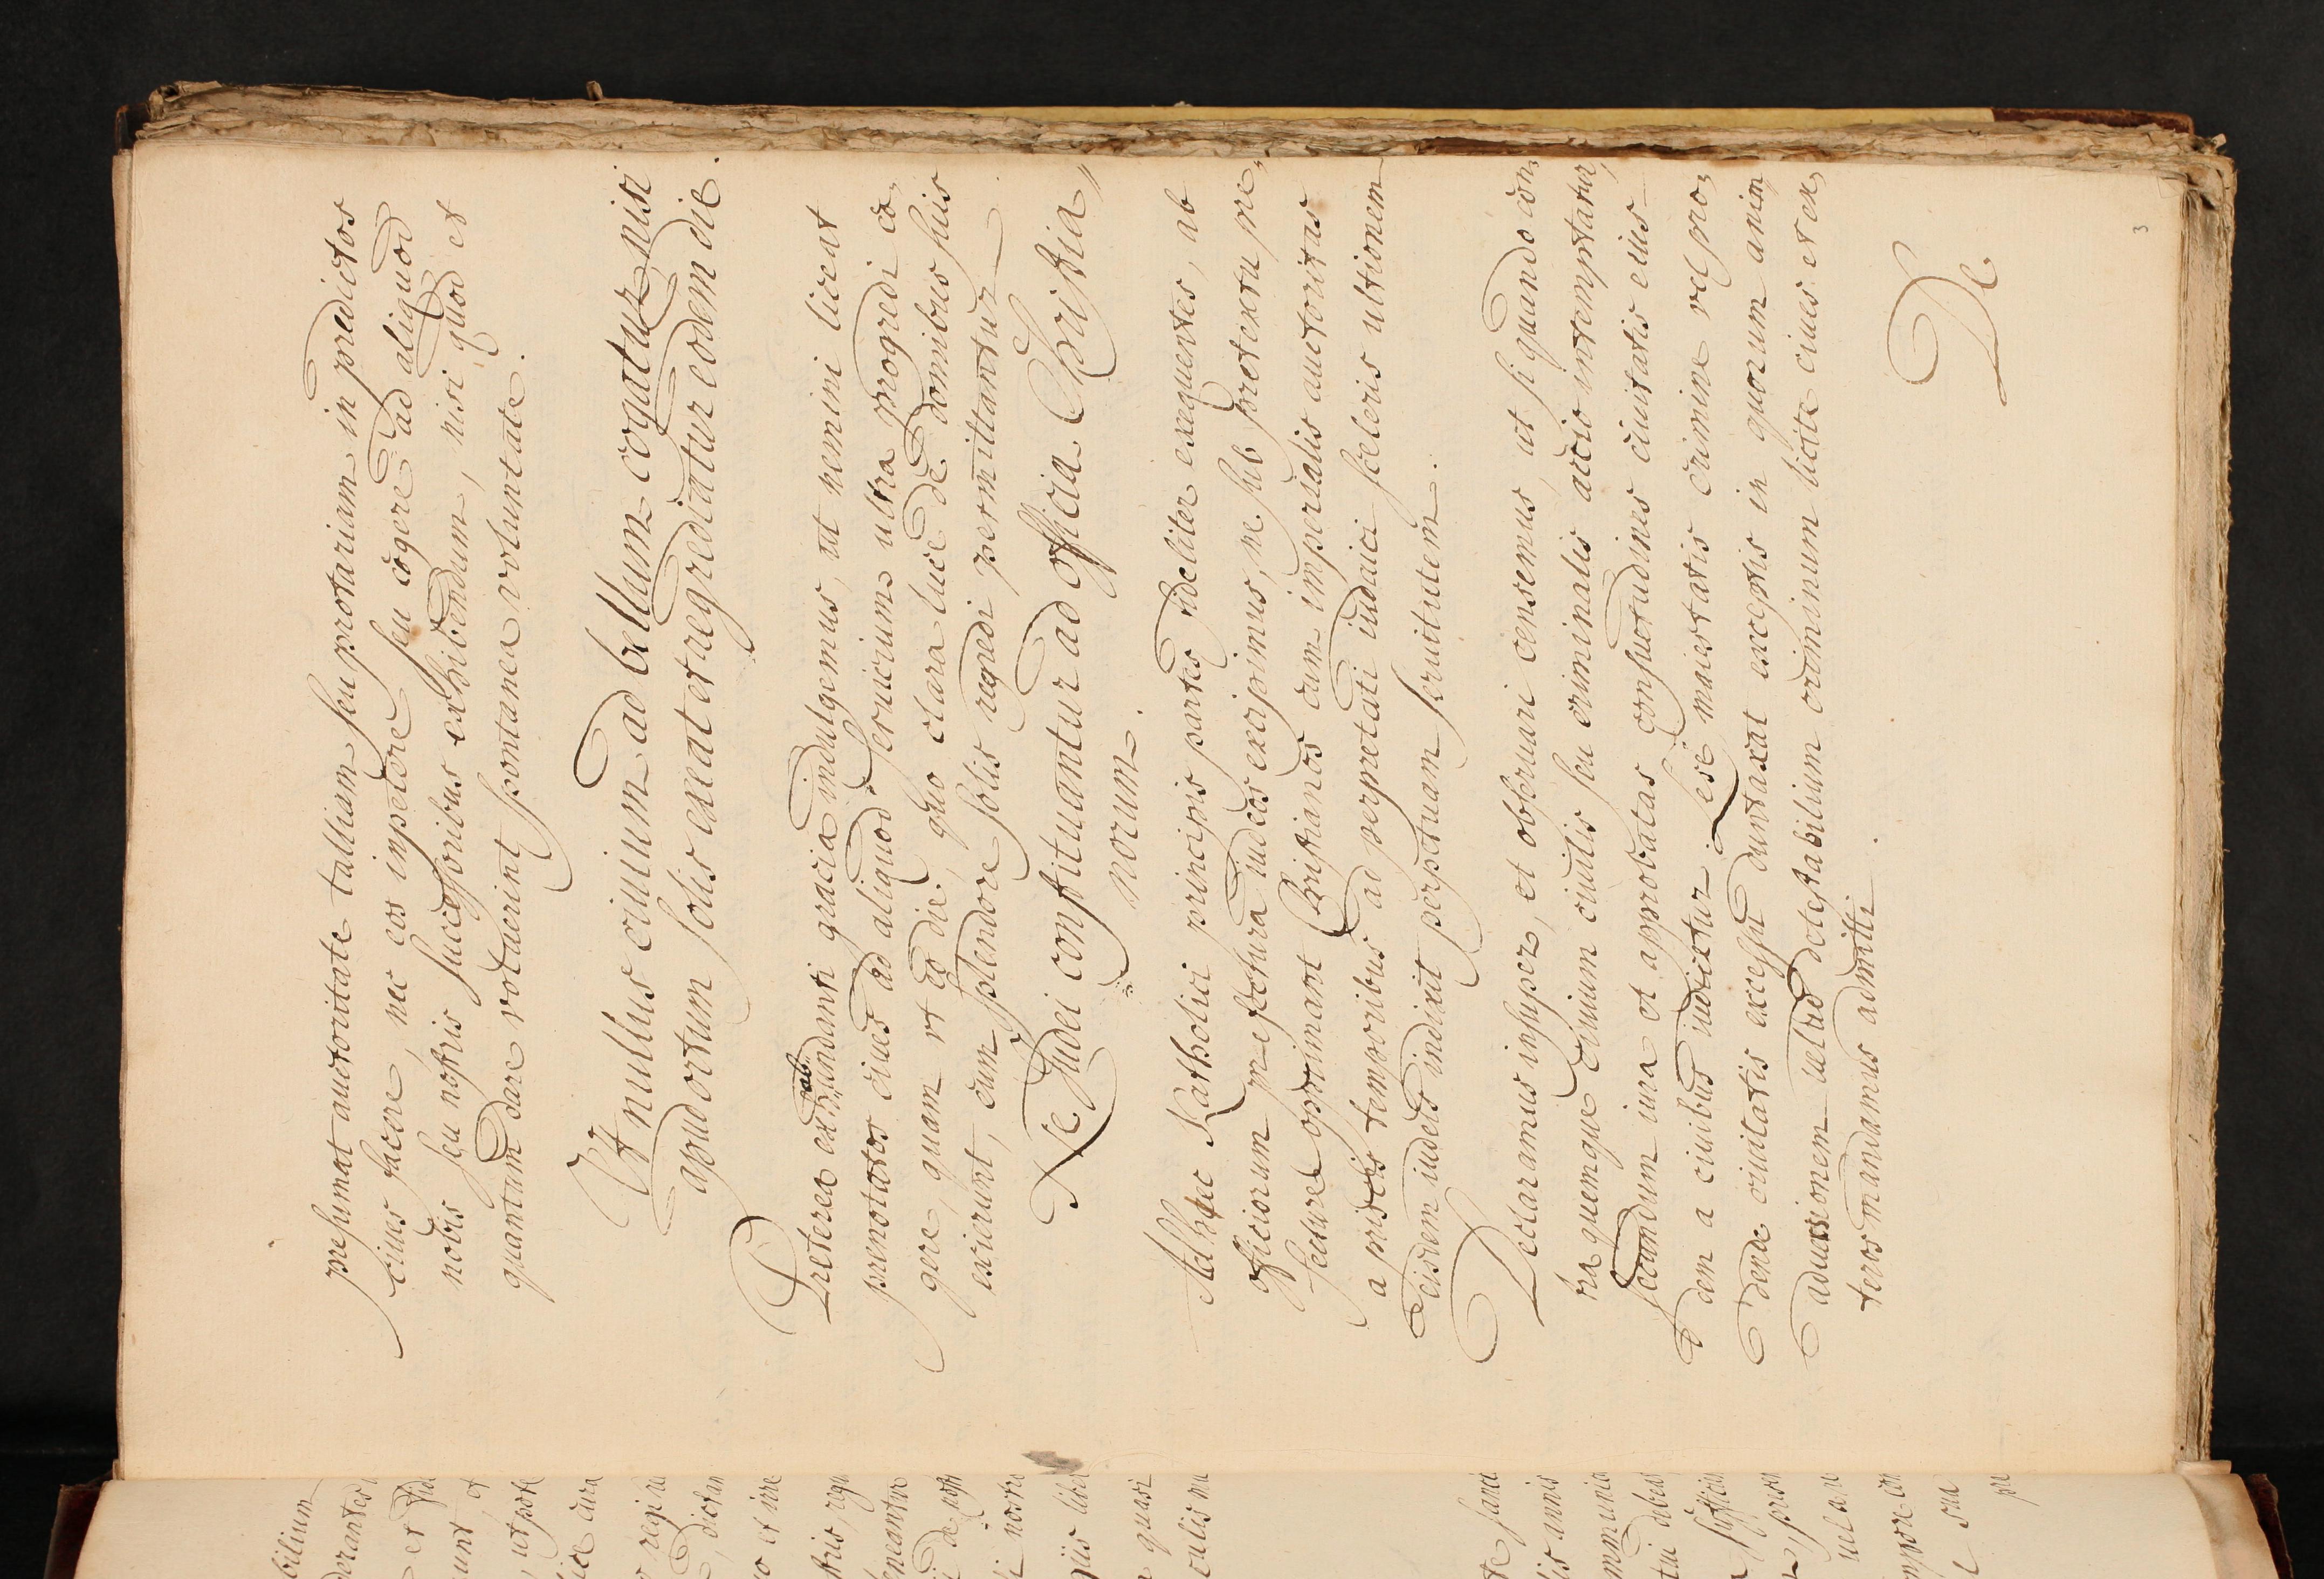 presumat auctoritate talliam seu protariam in predictos
ciues facere, nec eos impetere seu cogere ad aliquod
nobis seu nostris successoribus exhibendum, nisi quod et
quantum dare voluerint spontanea voluntate.
Vt nullus ciuium ad bellum cogatur nisi
apud ortum solis exeat et regrediatur eodem die.
Preterea ex abundanti gracia indulgemus, ut nemini liceat
prenotatos ciues ad aliquod seruicium ultra progredi co„
gere, quam vt eo die, quo clara luce de domibus suis
exierunt, cum splendore solis regredi permittantur
Ne Judei constituantur ad officia Christia„
norum.
Adhuc Katholici principis partes fideliter exequentes, ab
officiorum prefectura iudeos excipimus, ne sub pretextu pre„
fecture opprimant Christianos cum imperialis auctoritas
a priscis temporibus ad perpetrati iudaici sceleris ultionem
eisdem iudeis indixit perpetuam seruitutem.
Declaramus insuper, et obseruari censemus, ut si quando con„
tra quemque ciuium ciuilis seu criminalis accio intemptatur,
secundum iura et approbatas consuetudines ciuitatis eius
dem a ciuibus iudicetur. Lese maiestatis crimine vel pro„
dende ciuitatis excessu duntaxat exceptis in quorum anim
aduersionem uelud detestabilium criminum licite ciues et ex„
teros mandamus admitti.
De
3